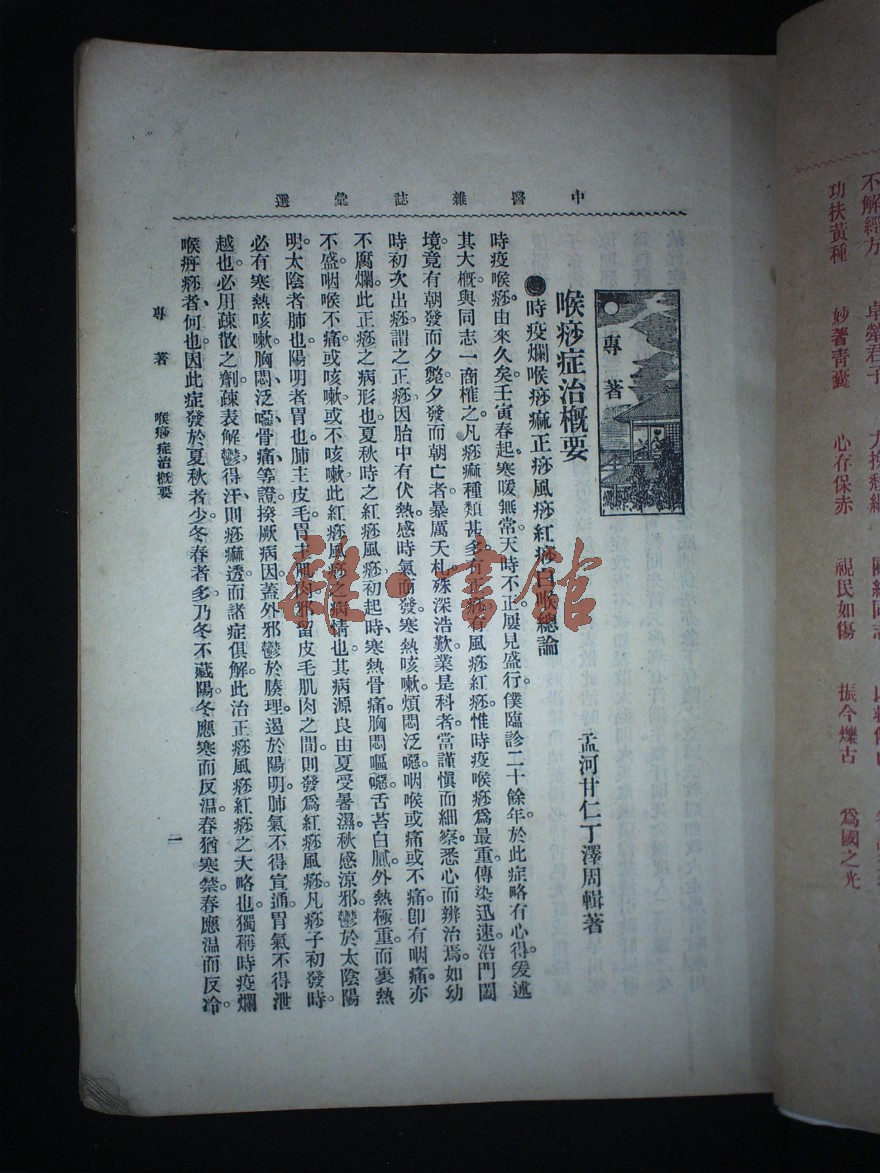 不解經方　卓犖君子
功扶黃種　妙著青囊　心存保赤　視民如傷　振今爍古　爲國之光
中醫雜誌彙選
專著
喉痧症治概要
孟河甘仁丁澤周輯著
時疫爛喉痧痲正痧風痧紅痧白喉總論
時疫喉痧。由來久矣。壬寅春起。寒暖無常。天時不正。屢見盛行。僕臨診二十餘年。於此症略有心得。爰述
其大概。與同志一商榷之。凡痧痲種類甚多。有正痧有風痧紅痧。惟時疫喉痧爲最重。傳染迅速。沿門闔
境。竟有朝發而夕斃。夕發而朝亡者。暴厲夭札。殊深浩歎。業是科者。當謹慎而細察。悉心而辨治焉。如幼
時初次出痧。謂之正痧。因胎中有伏熱。感時氣而發。寒熱咳嗽。煩悶泛噁。咽喉或痛或不痛。卽有咽痛。亦
不腐爛。此正痧之病形也。夏秋時之紅痧風痧。初起時寒熱骨痛。胸悶嘔噁。舌苔白膩。外熱極重。而裏熱
不盛。咽喉不痛。或咳嗽。或不咳嗽。此紅痧風痧之病情也。其病源良由夏受暑濕。秋感涼邪。鬱於太陰陽
明。太陰者肺也。陽明者胃也。肺主皮毛。胃主肌肉。邪留皮毛肌肉之間。則發爲紅痧風痧。凡痧子初發時。
必有寒熱、咳嗽、胸悶、泛噁、骨痛、等證。揆厥病因。蓋外邪鬱於腠理。遏於陽明。肺氣不得宣通。胃氣不得泄
越也。必用疎散之劑。疎表解鬱。得汗則痧痲透。而諸症俱解。此治正痧風痧紅痧之大略也。獨稱時疫爛
喉痧者何也。因此症發於夏秋者少。冬春者多。乃冬不藏陽。冬應寒而反溫。春猶寒禁。春應溫而反冷。
專著　喉痧症治概要
一
雜·書館